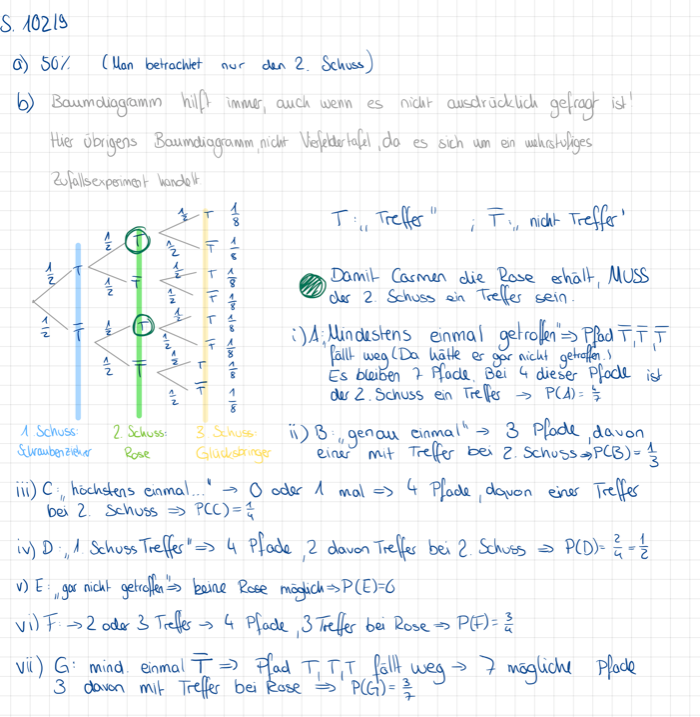 S. 102/9
a) 50% (Man betrachtet nur den 2. Schuss)
b) Baumdiagramm hilft immer, auch wenn es nicht ausdrücklich gefragt ist!
Hier übrigens Baumdiagramm, nicht Vierfeldertafel, da es sich um ein mehrstufiges
Zufallsexperiment handelt
1/2 T 1/2 T 1/2 T 1/8
1/2 T̅ 1/8
1/2 T̅ 1/2 T 1/8
1/2 T̅ 1/8
1/2 T̅ 1/2 T 1/2 T 1/8
1/2 T̅ 1/8
1/2 T̅ 1/2 T 1/8
1/2 T̅ 1/8
1. Schuss: Schraubenzieher
2. Schuss: Rose
3. Schuss: Glücksbringer
T: „Treffer" ; T̅: „nicht Treffer'
Damit Carmen die Rose erhält, MUSS
der 2. Schuss ein Treffer sein.
i) A: „Mindestens einmal getroffen" ⇒ Pfad T̅, T̅, T̅
fällt weg (Da hätte er gar nicht getroffen.)
Es bleiben 7 Pfade. Bei 4 dieser Pfade ist
der 2. Schuss ein Treffer → P(A) = 4/7
ii) B: „genau einmal" → 3 Pfade, davon
einer mit Treffer bei 2. Schuss ⇒ P(B) = 1/3
iii) C: „höchstens einmal..." → 0 oder 1 mal ⇒ 4 Pfade, davon einer Treffer
bei 2. Schuss ⇒ P(C) = 1/4
iv) D: „1 Schuss Treffer" ⇒ 4 Pfade, 2 davon Treffer bei 2. Schuss ⇒ P(D) = 2/4 = 1/2
v) E: „gar nicht getroffen" ⇒ keine Rose möglich ⇒ P(E) = 0
vi) F: → 2 oder 3 Treffer → 4 Pfade, 3 Treffer bei Rose ⇒ P(F) = 3/4
vii) G: mind. einmal T̅ ⇒ Pfad T, T, T fällt weg → 7 mögliche Pfade
3 davon mit Treffer bei Rose ⇒ P(G) = 3/7